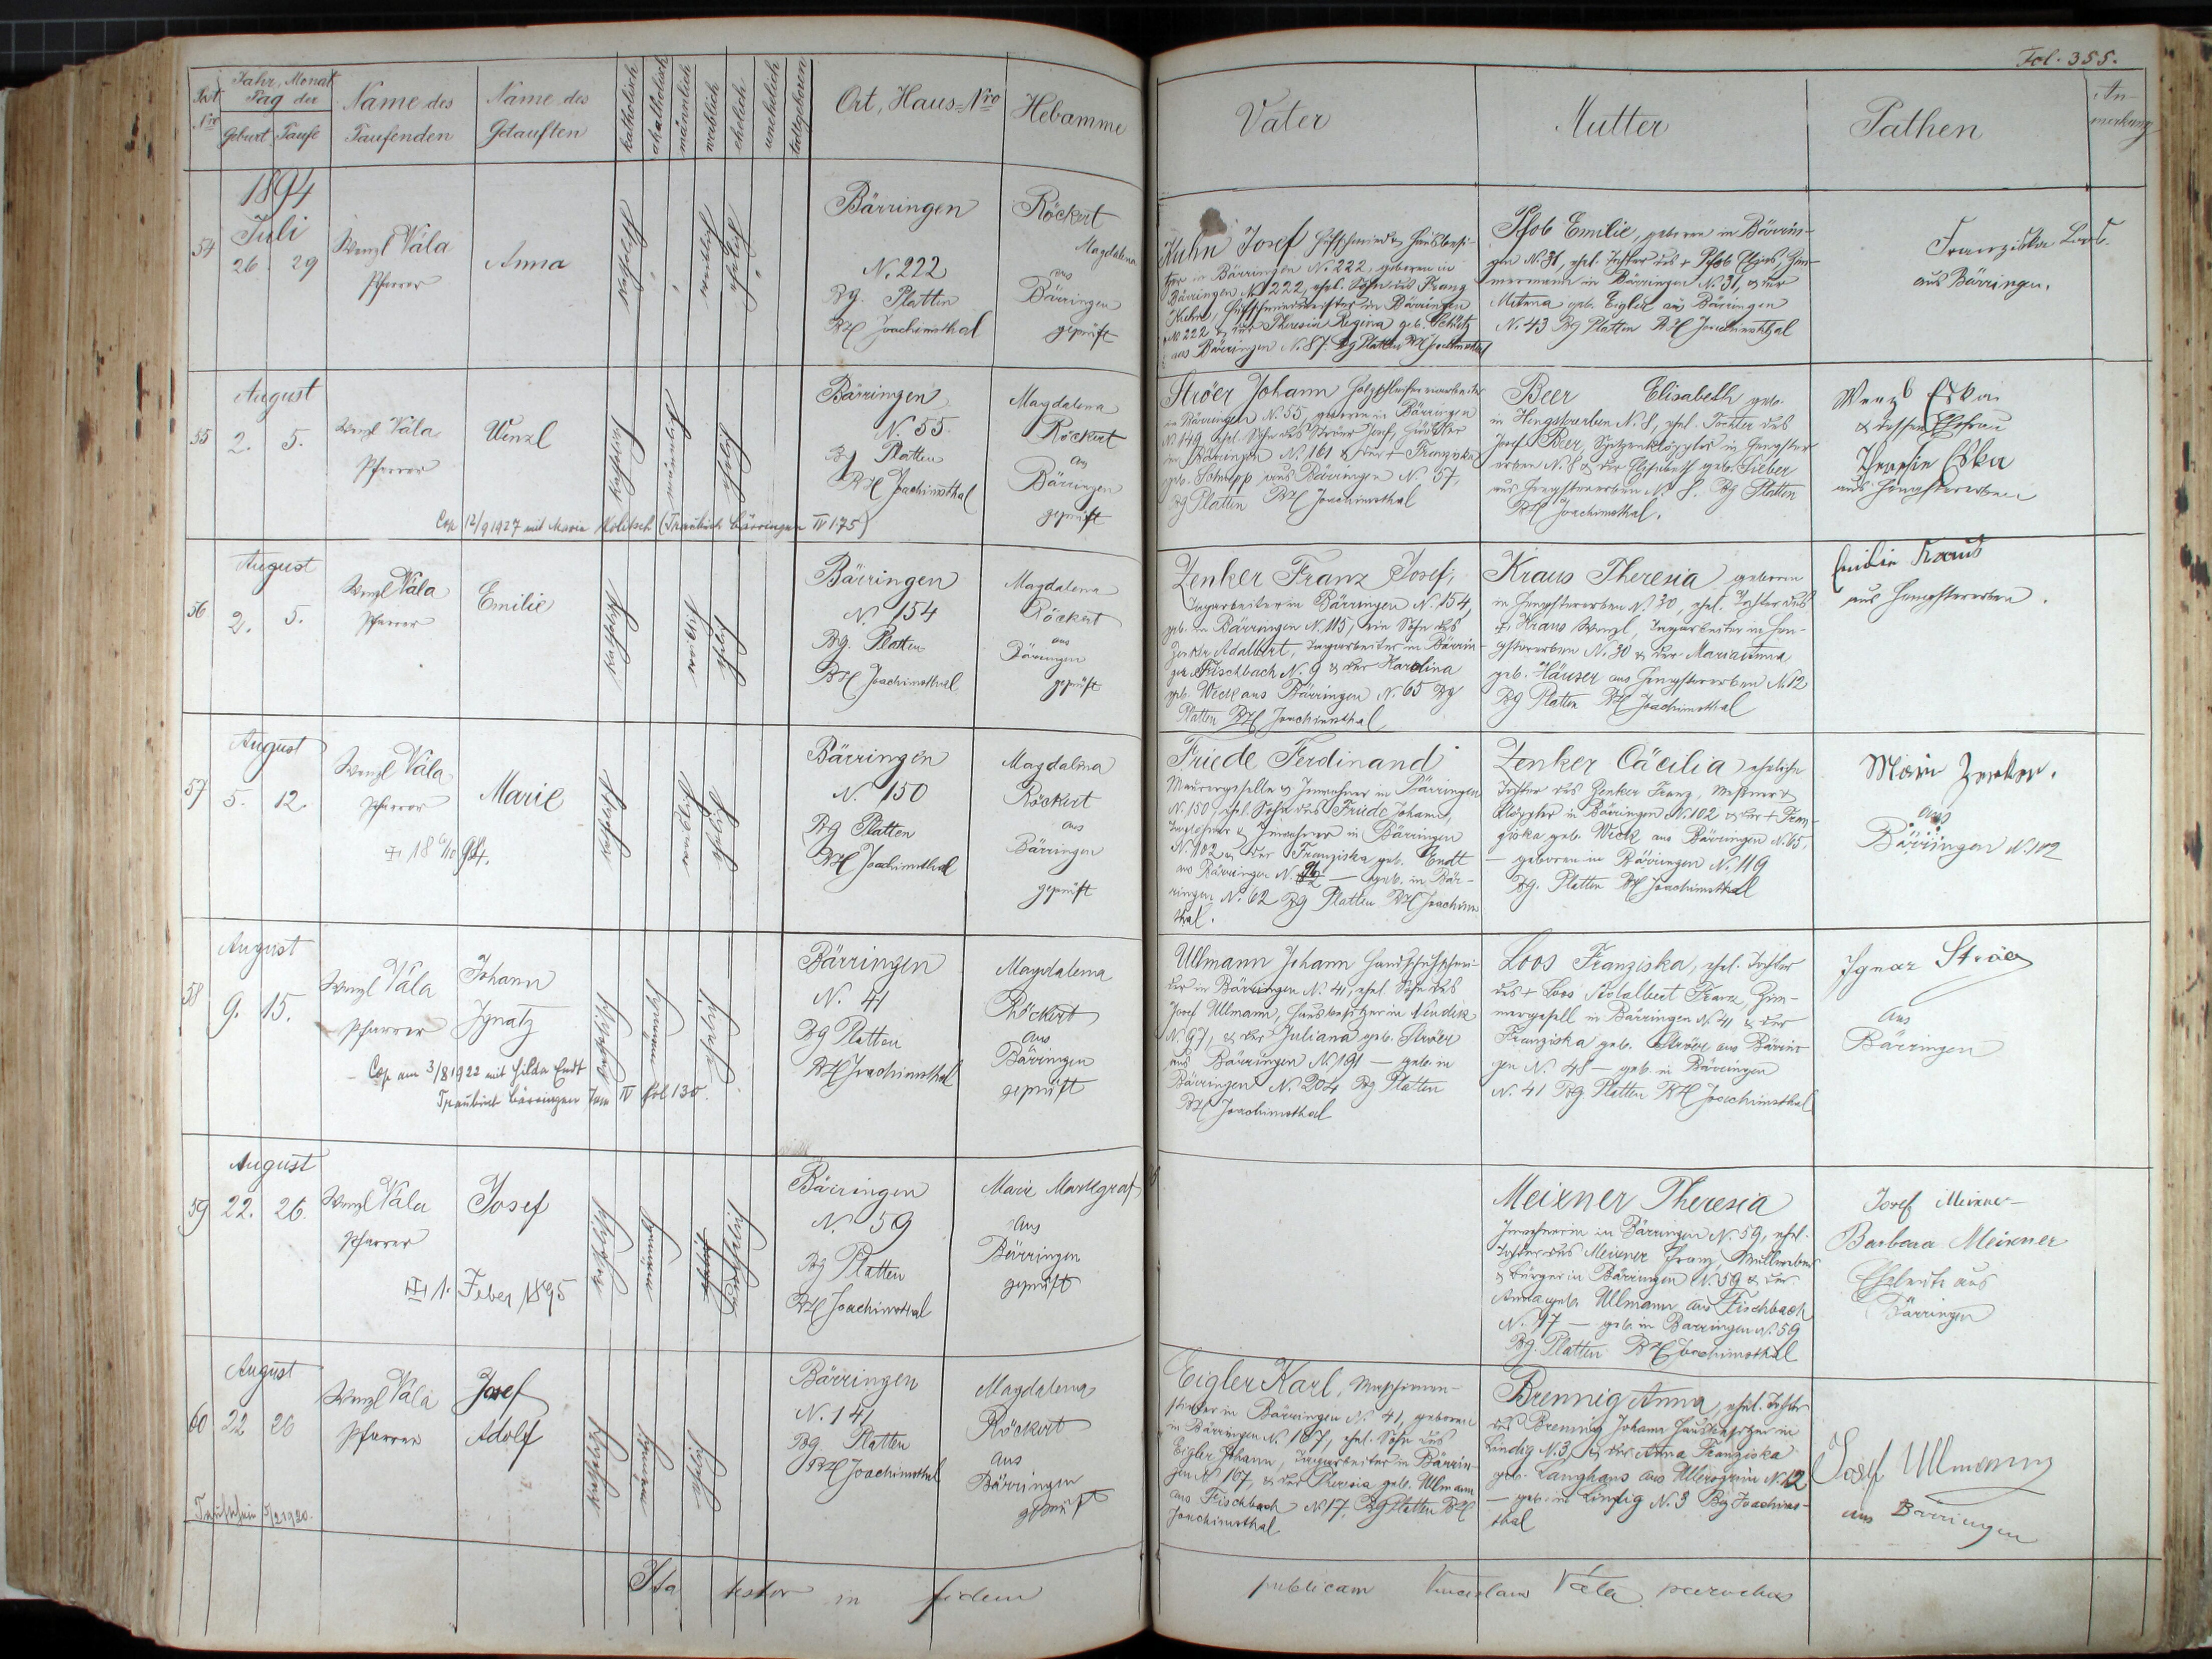 Fol. 355.
Post Nro
Jahr, Monat
Tag der
Geburt Taufe
Name des
Taufenden
Name des
Getauften
katholisch
akatholisch
männlich
weiblich
ehelich
unehelich
todtgeboren
Ort, Haus-Nro
Hebamme
Vater
Mutter
Pathen
An-
merkung
1894
Juli
54 26. 29
Wenzl Vála
Pfarrer
Anna
katholisch
weiblich
ehelich
Bärringen
N. 222
Bg. Platten
BH Joachimsthal
Röckert
Magdalena
aus
Bärringen
geprüft
Kuhn Josef Hufschmied & Hausbesi-
tzer in Bärringen N. 222, geboren in
Bärringen N. 222, ehel. Sohn des Franz
Kuhn, Hufschmiedmeister in Bärringen
N. 222 & der Theresia Regina geb. Schütz
aus Bärringen N. 87. Bg Platten BH Joachimsthal
Pfob Emilie, geboren in Bärrin-
gen N. 31, ehel. Tochter des + Pfob Elias, Zim-
mermann in Bärringen N. 31, & der
geb. Eigler aus Bärringen
N. 43 Bg Platten BH Joachimsthal
Franziska Loos.
aus Bärringen.
August
55 2. 5.
Wenzl Vála
Pfarrer
Wenzl
katholisch
männlich
ehelich
Bärringen
N. 55
Bg Platten
BH Joachimsthal
Magdalena
Röckert
aus
Bärringen
geprüft
Cop 12/9 1927 mit Maria Kolitsch (Traubuch Bärringen IV 175)
Ströer Johann
in Bärringen N. 55, geboren in Bärringen
N. 149, ehel. Sohn des Ströer Josef, Häusler
in Bärringen N. 161 & der + Franziska
geb. Schnepp aus Bärringen N. 57,
Bg Platten BH Joachimsthal
Beer Elisabeth geb.
in Hengstererben N. 8, ehel. Tochter des
Josef Beer, Spitzenklöppler in Hengster-
erben N. 8 & der Elisabeth geb. Sieber
aus Hengstererben N. 8. Bg Platten
BH Joachimsthal.
Wenzl Eska
& dessen Ehefrau
Theresia Eska
aus Hengstererben
August
56 2. 5.
Wenzl Vála
Pfarrer
Emilie
katholisch
weiblich
ehelich
Bärringen
N. 154
Bg. Platten
BH Joachimsthal
Magdalena
Röckert
aus
Bärringen
geprüft
Zenker Franz Josef,
Tagarbeiter in Bärringen N. 154,
geb. in Bärringen N. 115, ein Sohn des
Zenker Adalbert, Tagarbeiter in Bärrin-
gen Fischbach N. 9 & der Karolina
geb. Weck aus Bärringen N. 65 Bg
Platten BH Joachimsthal
Kraus Theresia geboren
in Hengstererben N. 30, ehel. Tochter des
+ Kraus Wenzl, Tagarbeiter in Hen-
gstererben N. 30 & der Marianna
geb. Häuser aus Hengstererben N. 12
Bg Platten BH Joachimsthal
Emilie Kraus
aus Hengstererben.
August
57 5. 12.
Wenzl Vála
Pfarrer
Marie
katholisch
weiblich
ehelich
Bärringen
N. 150
Bg Platten
BH Joachimsthal
Magdalena
Röckert
aus
Bärringen
geprüft
Friede Ferdinand
Maurergeselle & Inwohner in Bärringen
N. 150, ehel. Sohn des Friede Johann,
Taglöhner & Inwohner in Bärringen
N. 102 & der Franziska geb. Endt
aus Bärringen N. — geb. in Bär-
ringen N. 62 Bg Platten BH Joachims-
thal.
Zenker Cäcilia, eheliche
Tochter des Zenker Franz, &
Klöppler in Bärringen N. 102 & der + Fran-
ziska geb. Weck aus Bärringen N. 65,
— geboren in Bärringen N. 119
Bg. Platten BH Joachimsthal
Marie Zenker.
aus
Bärringen N. 102
August
58 9. 15.
Wenzl Vála
Pfarrer
Johann
Ignatz
katholisch
männlich
ehelich
Bärringen
N. 41
Bg Platten
BH Joachimsthal
Magdalena
Röckert
aus
Bärringen
geprüft
Cop am 3/8 1922 mit Hilda Endt
Traubuch Bärringen Tom IV fol 130.
Ullmann Johann Handschuhschnei-
der in Bärringen N. 41, ehel. Sohn des
Josef Ullmann, Hausbesitzer in Neudek
N. 97, & der Juliana geb. Ströer
aus Bärringen N. 191 — geb. in
Bärringen N. 204 Bg Platten
BH Joachimsthal
Loos Franziska, ehel. Tochter
des + Loos Adalbert Franz, Zim-
mergesell in Bärringen N. 41 & der
Franziska geb. Ströer aus Bärrin-
gen N. 48 — geb. in Bärringen
N. 41 Bg Platten BH Joachimsthal
Ignaz Ströer
aus
Bärringen
August
59 22. 26.
Wenzl Vála
Pfarrer
Josef
1. Feber 1895
katholisch
männlich
unehelich
Bärringen
N. 59
Bg Platten
BH Joachimsthal
Marie Markgraf
aus
Bärringen
geprüft
Meixner Theresia
Inwohnerin in Bärringen N. 59, ehel.
Tochter des Meixner Franz,
& Bürger in Bärringen N. 59 & der
Anna geb. Ullmann aus Fischbach
N. 17 — geb. in Bärringen N. 59
Bg. Platten BH Joachimsthal
Josef Meixner
Barbara Meixner
Eheleute aus
Bärringen
August
60 22 26
Wenzl Vála
Pfarrer
Josef
Adolf
katholisch
männlich
ehelich
Bärringen
N. 141
Bg. Platten
BH Joachimsthal
Magdalena
Röckert
aus
Bärringen
geprüft
Taufschein 5/2 1920.
Eigler Karl, Maschinen-
sticker in Bärringen N. 41, geboren
in Bärringen N. 167, ehel. Sohn des
Eigler Johann, Tagarbeiter in Bärrin-
gen N. 167, & der Theresia geb. Ullmann
aus Fischbach N. 17. Bg Platten BH
Joachimsthal
Brennig Anna, ehel. Tochter
des Brennig Johann Hausbesitzer in
Lindig N. 3, & der Anna Franziska
geb. Langhans aus Ullersgrün N. 12
— geb. in Lindig N. 3 Bg Joachims-
thal
Josef Ullmann
aus Bärringen
Ita testor in fidem publicam Venceslaus Vála parochus